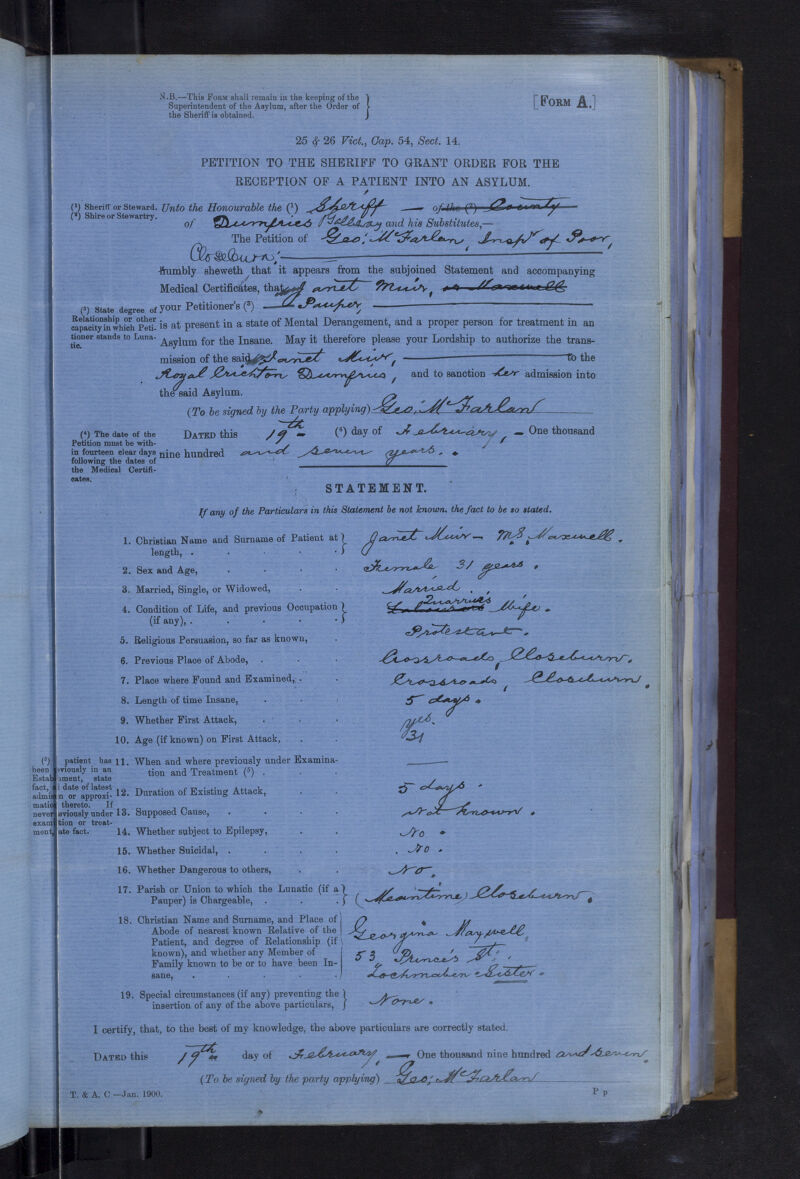 N.B.—This Form shall remain in the keeping of the
Superintendent of the Asylum, after the Order of
the Sheriff is obtained.
[Form A.]
25 & 26 Vict., Cap. 54, Sect. 14.
PETITION TO THE SHERIFF TO GRANT ORDER FOR THE
RECEPTION OF A PATIENT INTO AN ASYLUM.
(1) Sheriff or Steward.
(2) Shire or Stewartry.
Unto the Honourable the (1) Sheriff — of the (2) County
of Dumfries & Galloway and his Substitutes,—
The Petition of Geo: McFarlan, Inspr of Poor,
Closeburn,
Humbly sheweth that it appears from the subjoined Statement and accompanying
Medical Certificates, that Janet Muir, or Maxwell
(3) State degree of
Relationship or other
capacity in which Peti-
tioner stands to Luna-
tic.
your Petitioner's (3) — a Pauper,
is at present in a state of Mental Derangement, and a proper person for treatment in an
Asylum for the Insane. May it therefore please your Lordship to authorize the trans-
mission of the said Janet Muir, — to the
Royal Crichton Dumfries, and to sanction her admission into
the said Asylum.
(To be signed by the Party applying) Geo: McFarlan
(4) The date of the
Petition must be with-
in fourteen clear days
following the dates of
the Medical Certifi-
cates.
Dated this 19th (4) day of February, — One thousand
nine hundred and seven years.
STATEMENT.
If any of the Particulars in this Statement be not known, the fact to be so stated.
1. Christian Name and Surname of Patient at
length, . Janet Muir — M.S. Maxwell.
2. Sex and Age, Female 31 years.
3. Married, Single, or Widowed, Married.
4. Condition of Life, and previous Occupation
(if any), . Labourers Quarrier's Wife.
5. Religious Persuasion, so far as known, Protestant.
6. Previous Place of Abode, . Crossroads, Closeburn.
7. Place where Found and Examined, . Crossroads, Closeburn.
8. Length of time Insane, 5 days.
9. Whether First Attack, yes.
10. Age (if known) on First Attack, 31
(5) patient has
been viously in an
Estab ment, state
fact, date of latest
admis n or approxi-
matio thereto. If
never eviously under
exam tion or treat-
ment, ate fact.
11. When and where previously under Examina-
tion and Treatment (5) . —
12. Duration of Existing Attack, 5 days.
13. Supposed Cause, Not known.
14. Whether subject to Epilepsy, No.
15. Whether Suicidal, . No.
16. Whether Dangerous to others, No.
17. Parish or Union to which the Lunatic (if a
Pauper) is Chargeable, . (Meantime) Closeburn.
18. Christian Name and Surname, and Place of
Abode of nearest known Relative of the
Patient, and degree of Relationship (if
known), and whether any Member of
Family known to be or to have been In-
sane, .
Georgina Maxwell,
53 Prince's St.,
Lochmaben - Sister.
19. Special circumstances (if any) preventing the
insertion of any of the above particulars, None.
I certify, that, to the best of my knowledge, the above particulars are correctly stated.
Dated this 19th day of February, — One thousand nine hundred and seven.
(To be signed by the party applying) Geo: McFarlan
T. & A. C —Jan. 1900.
P p